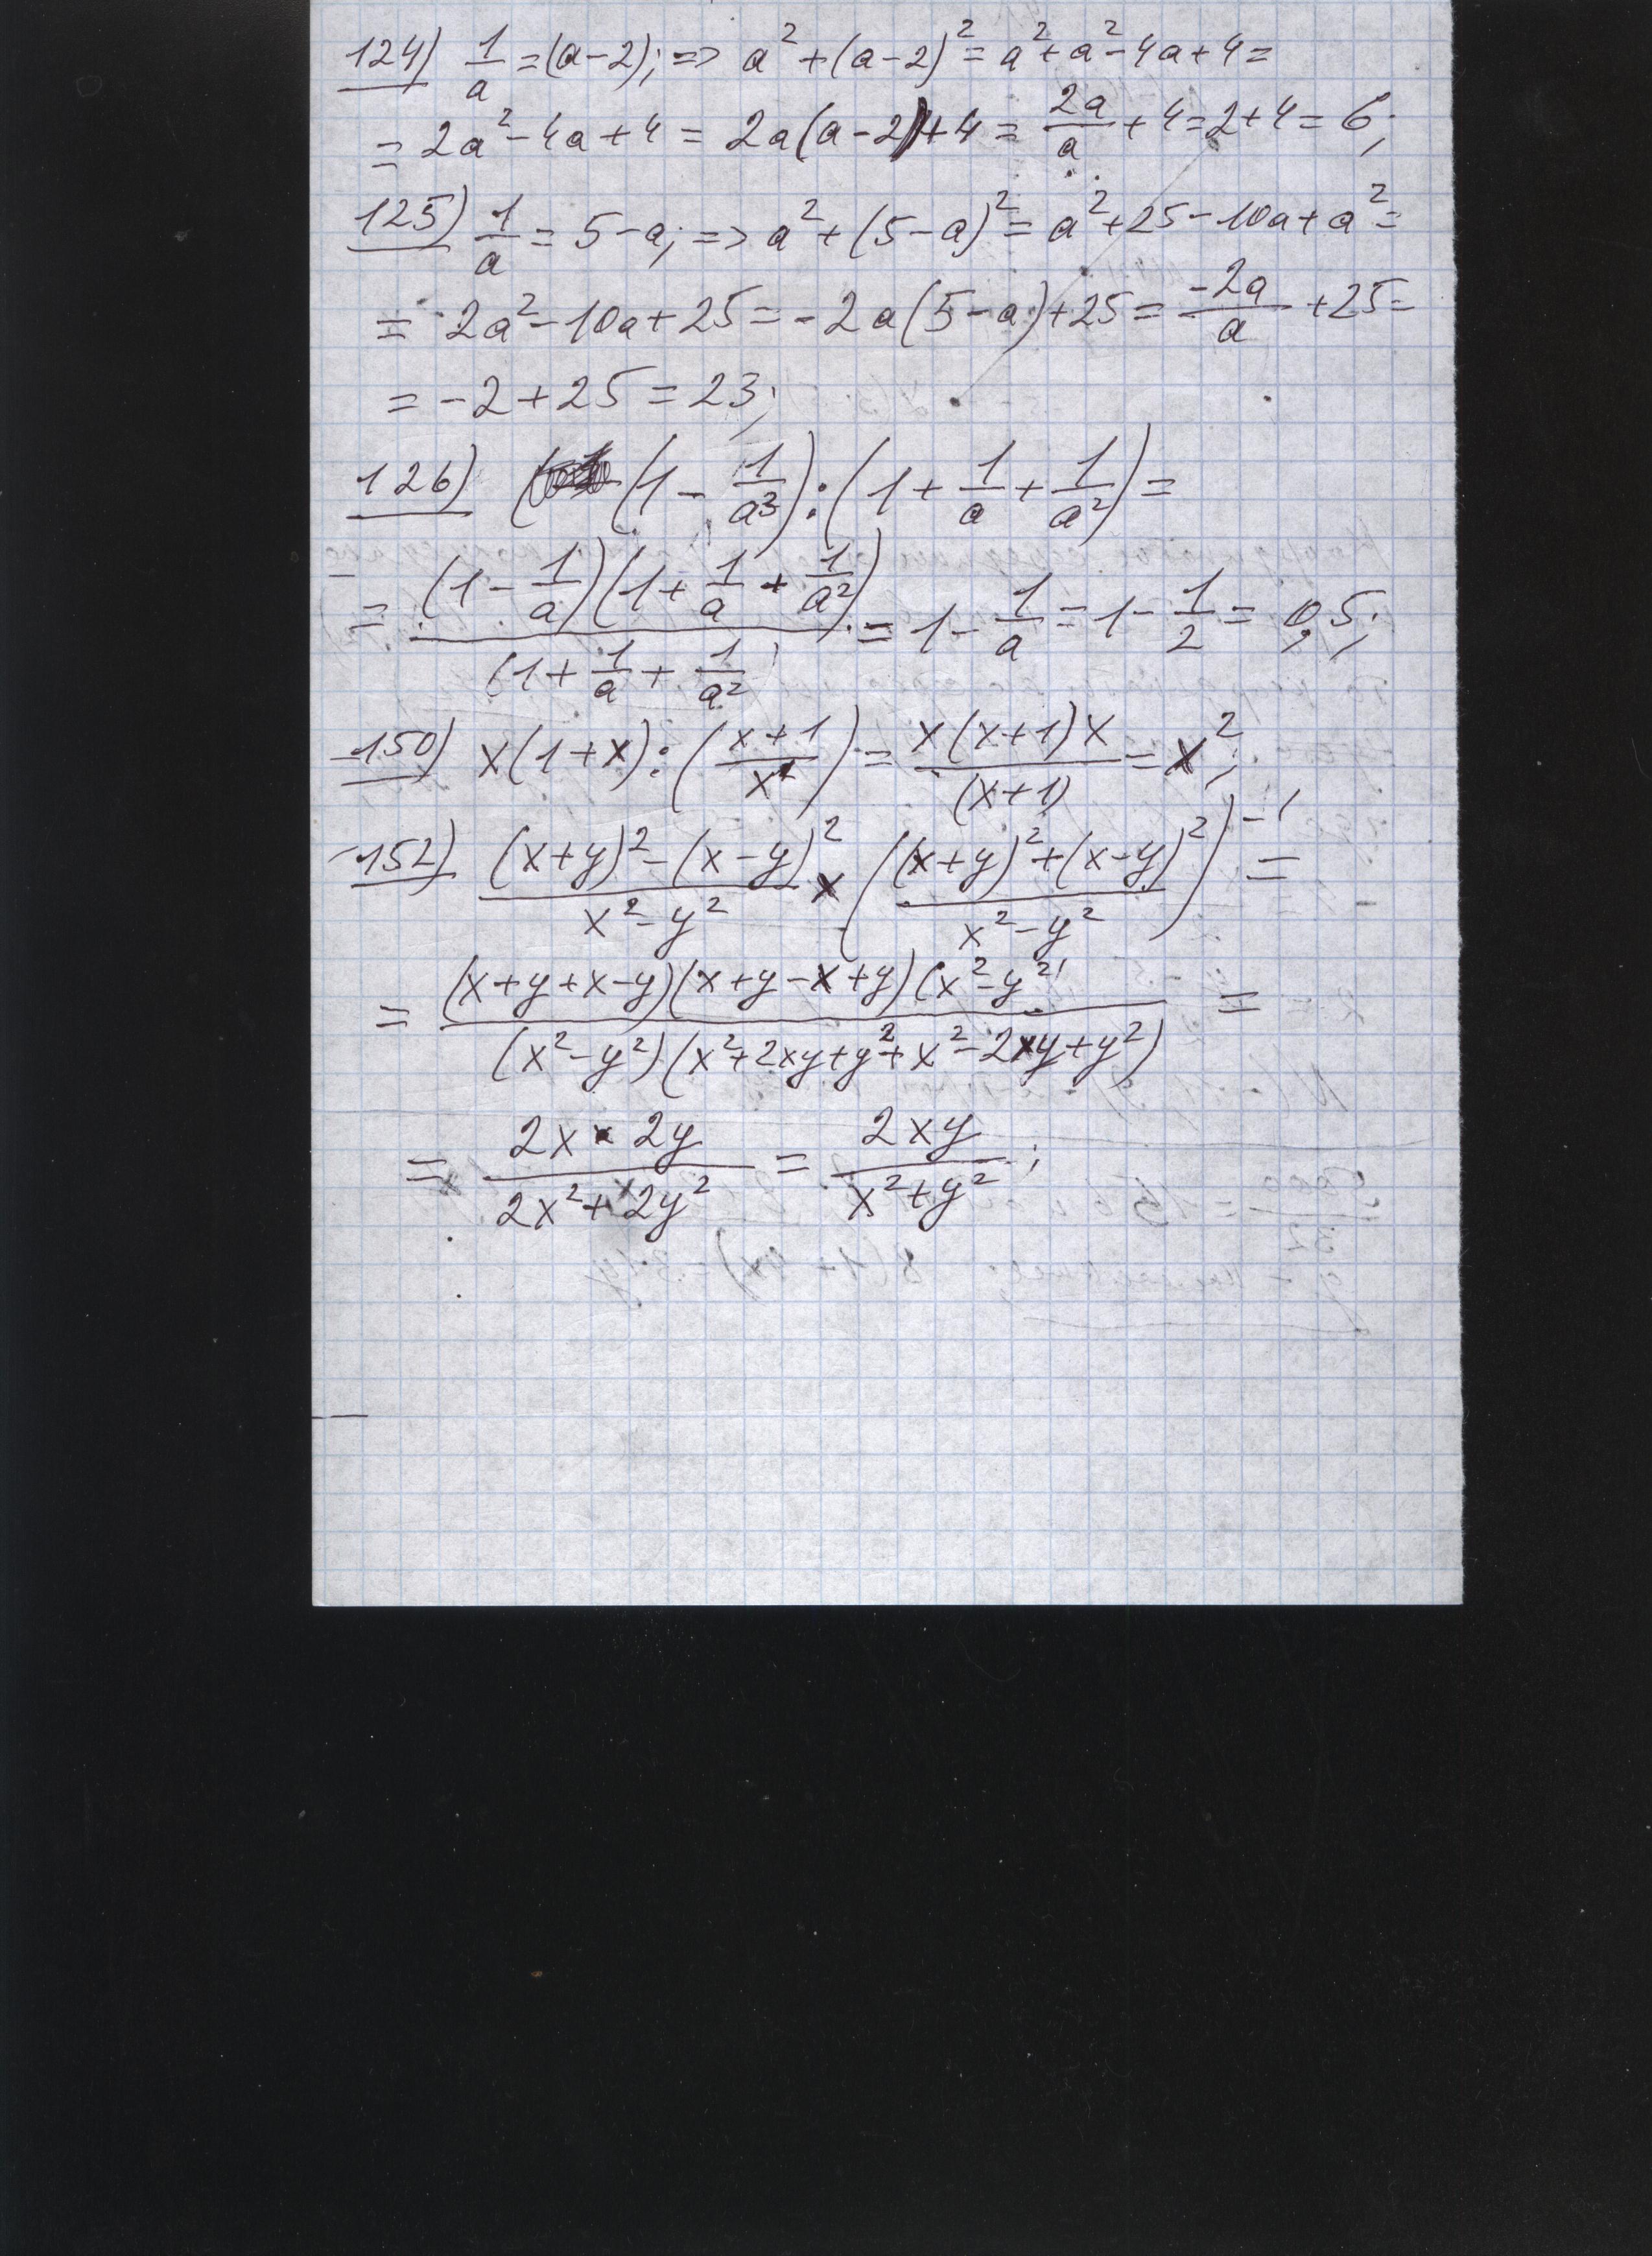 124) 1/a = (a-2); => a² + (a-2)² = a² + a² - 4a + 4 =
= 2a² - 4a + 4 = 2a(a-2) + 4 = 2a/a + 4 = 2 + 4 = 6;
125) 1/a = 5 - a; => a² + (5-a)² = a² + 25 - 10a + a² =
= 2a² - 10a + 25 = -2a(5-a) + 25 = -2a/a + 25 =
= -2 + 25 = 23;
126) (1 - 1/a³) : (1 + 1/a + 1/a²) =
= (1 - 1/a)(1 + 1/a + 1/a²) / (1 + 1/a + 1/a²) = 1 - 1/a = 1 - 1/2 = 0,5;
150) x(1+x) : ((x+1)/x) = x(x+1)x / (x+1) = x²;
152) ((x+y)² - (x-y)²) / (x² - y²) × (((x+y)² + (x-y)²) / (x² - y²))⁻¹ =
= (x+y+x-y)(x+y-x+y)(x²-y²) / (x²-y²)(x²+2xy+y²+x²-2xy+y²) =
= 2x × 2y / 2x²+2y² = 2xy / x²+y²;